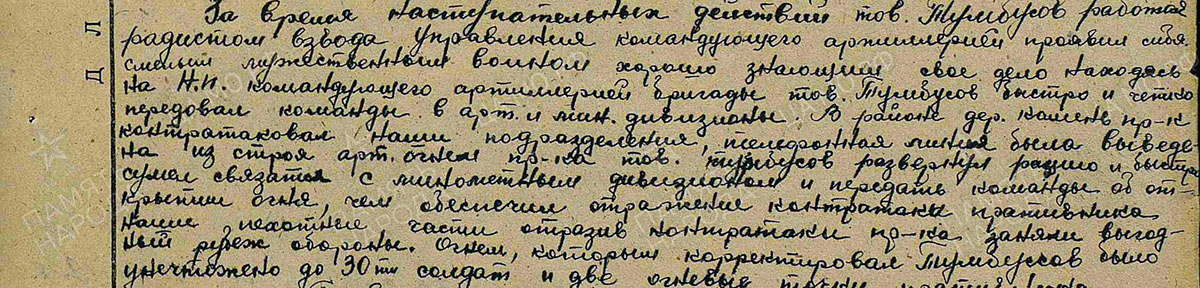 За время наступательных действий тов. Тумбусов работая
радистом взвода управления командующего артиллерией проявил себя
смелым мужественным воином хорошо знающим свое дело находясь
на Н.П. командующего артиллерией бригады тов. Тумбусов быстро и четко
передовал команды в арт. и мин. дивизионы. В районе дер. Камень пр-к
контратаковал наши подразделения, телефонная линия была выведе-
на из строя арт. огнем пр-ка тов. Тумбусов развернул рацию и быстро
сумел связатся с минометным дивизионом и передать команды об от-
крытии огня, чем обеспечил отражение контратаки пративника
наши пехотные части отразив контратаки пр-ка заняли выгод-
ный рубеж обороны. Огнем, которым корректировал Тумбуссов было
уничтожено до 30ти солдат и две огневые точки
Д Л
ПАМЯТЬ НАРОДА